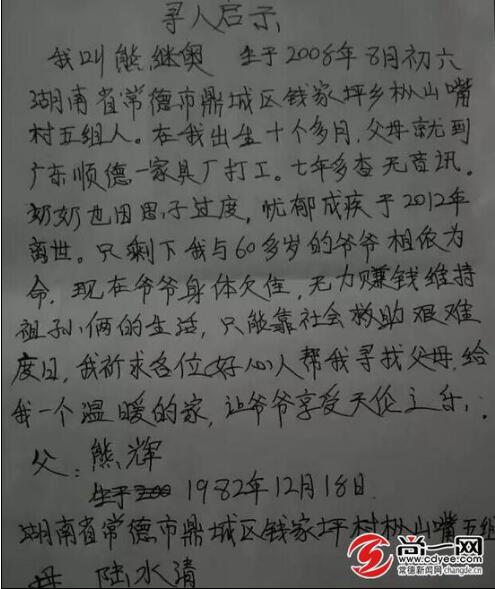 寻人启示
我叫熊继奥 生于2008年8月初六
湖南省常德市鼎城区钱家坪乡枞山嘴
村五组人。在我出生十个多月,父母就到
广东顺德一家具厂打工。七年多杳无音讯。
奶奶也因思子过度,忧郁成疾于2012年
离世。只剩下我与60多岁的爷爷相依为
命,现在爷爷身体欠佳,无力赚钱维持
祖孙俩的生活,只能靠社会救助艰难
度日,我祈求各位好心人帮我寻找父母,给
我一个温暖的家,让爷爷享受天伦之乐。
父:熊辉
生于200 1982年12月18日
湖南省常德市鼎城区钱家坪村枞山嘴五组
母 陆水清
尚一网
www.cdyee.com
常德新闻网 changde.cn